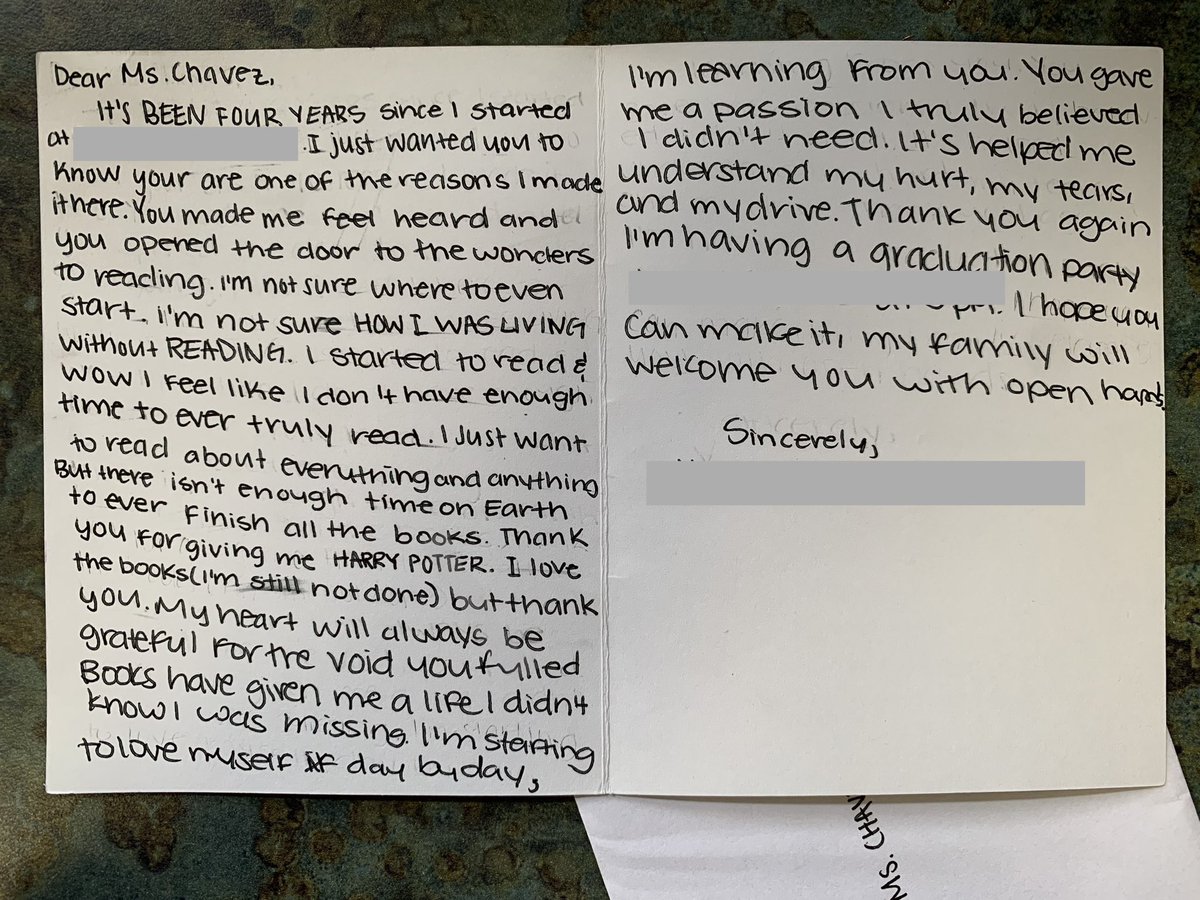 Dear Ms. Chavez,
IT'S BEEN FOUR YEARS since I started
at . I just wanted you to
know your are one of the reasons I made
it here. You made me feel heard and
you opened the door to the wonders
to reading. I'm not sure where to even
start. I'm not sure HOW I WAS LIVING
without READING. I started to read &
wow I feel like I don't have enough
time to ever truly read. I Just want
to read about everything and anything
But there isn't enough time on Earth
to ever Finish all the books. Thank
you for giving me HARRY POTTER. I love
the books (I'm still not done) but thank
you. My heart will always be
grateful for the void you fylled
Books have given me a life I didn't
know I was missing. I'm starting
to love myself day by day,
I'm learning from you. You gave
me a passion I truly believed
I didn't need. It's helped me
understand my hurt, my tears,
and my drive. Thank you again
I'm having a graduation party
pm. I hope you
can make it, my family will
welcome you with open hands.
Sincerely,
MS. CHAV